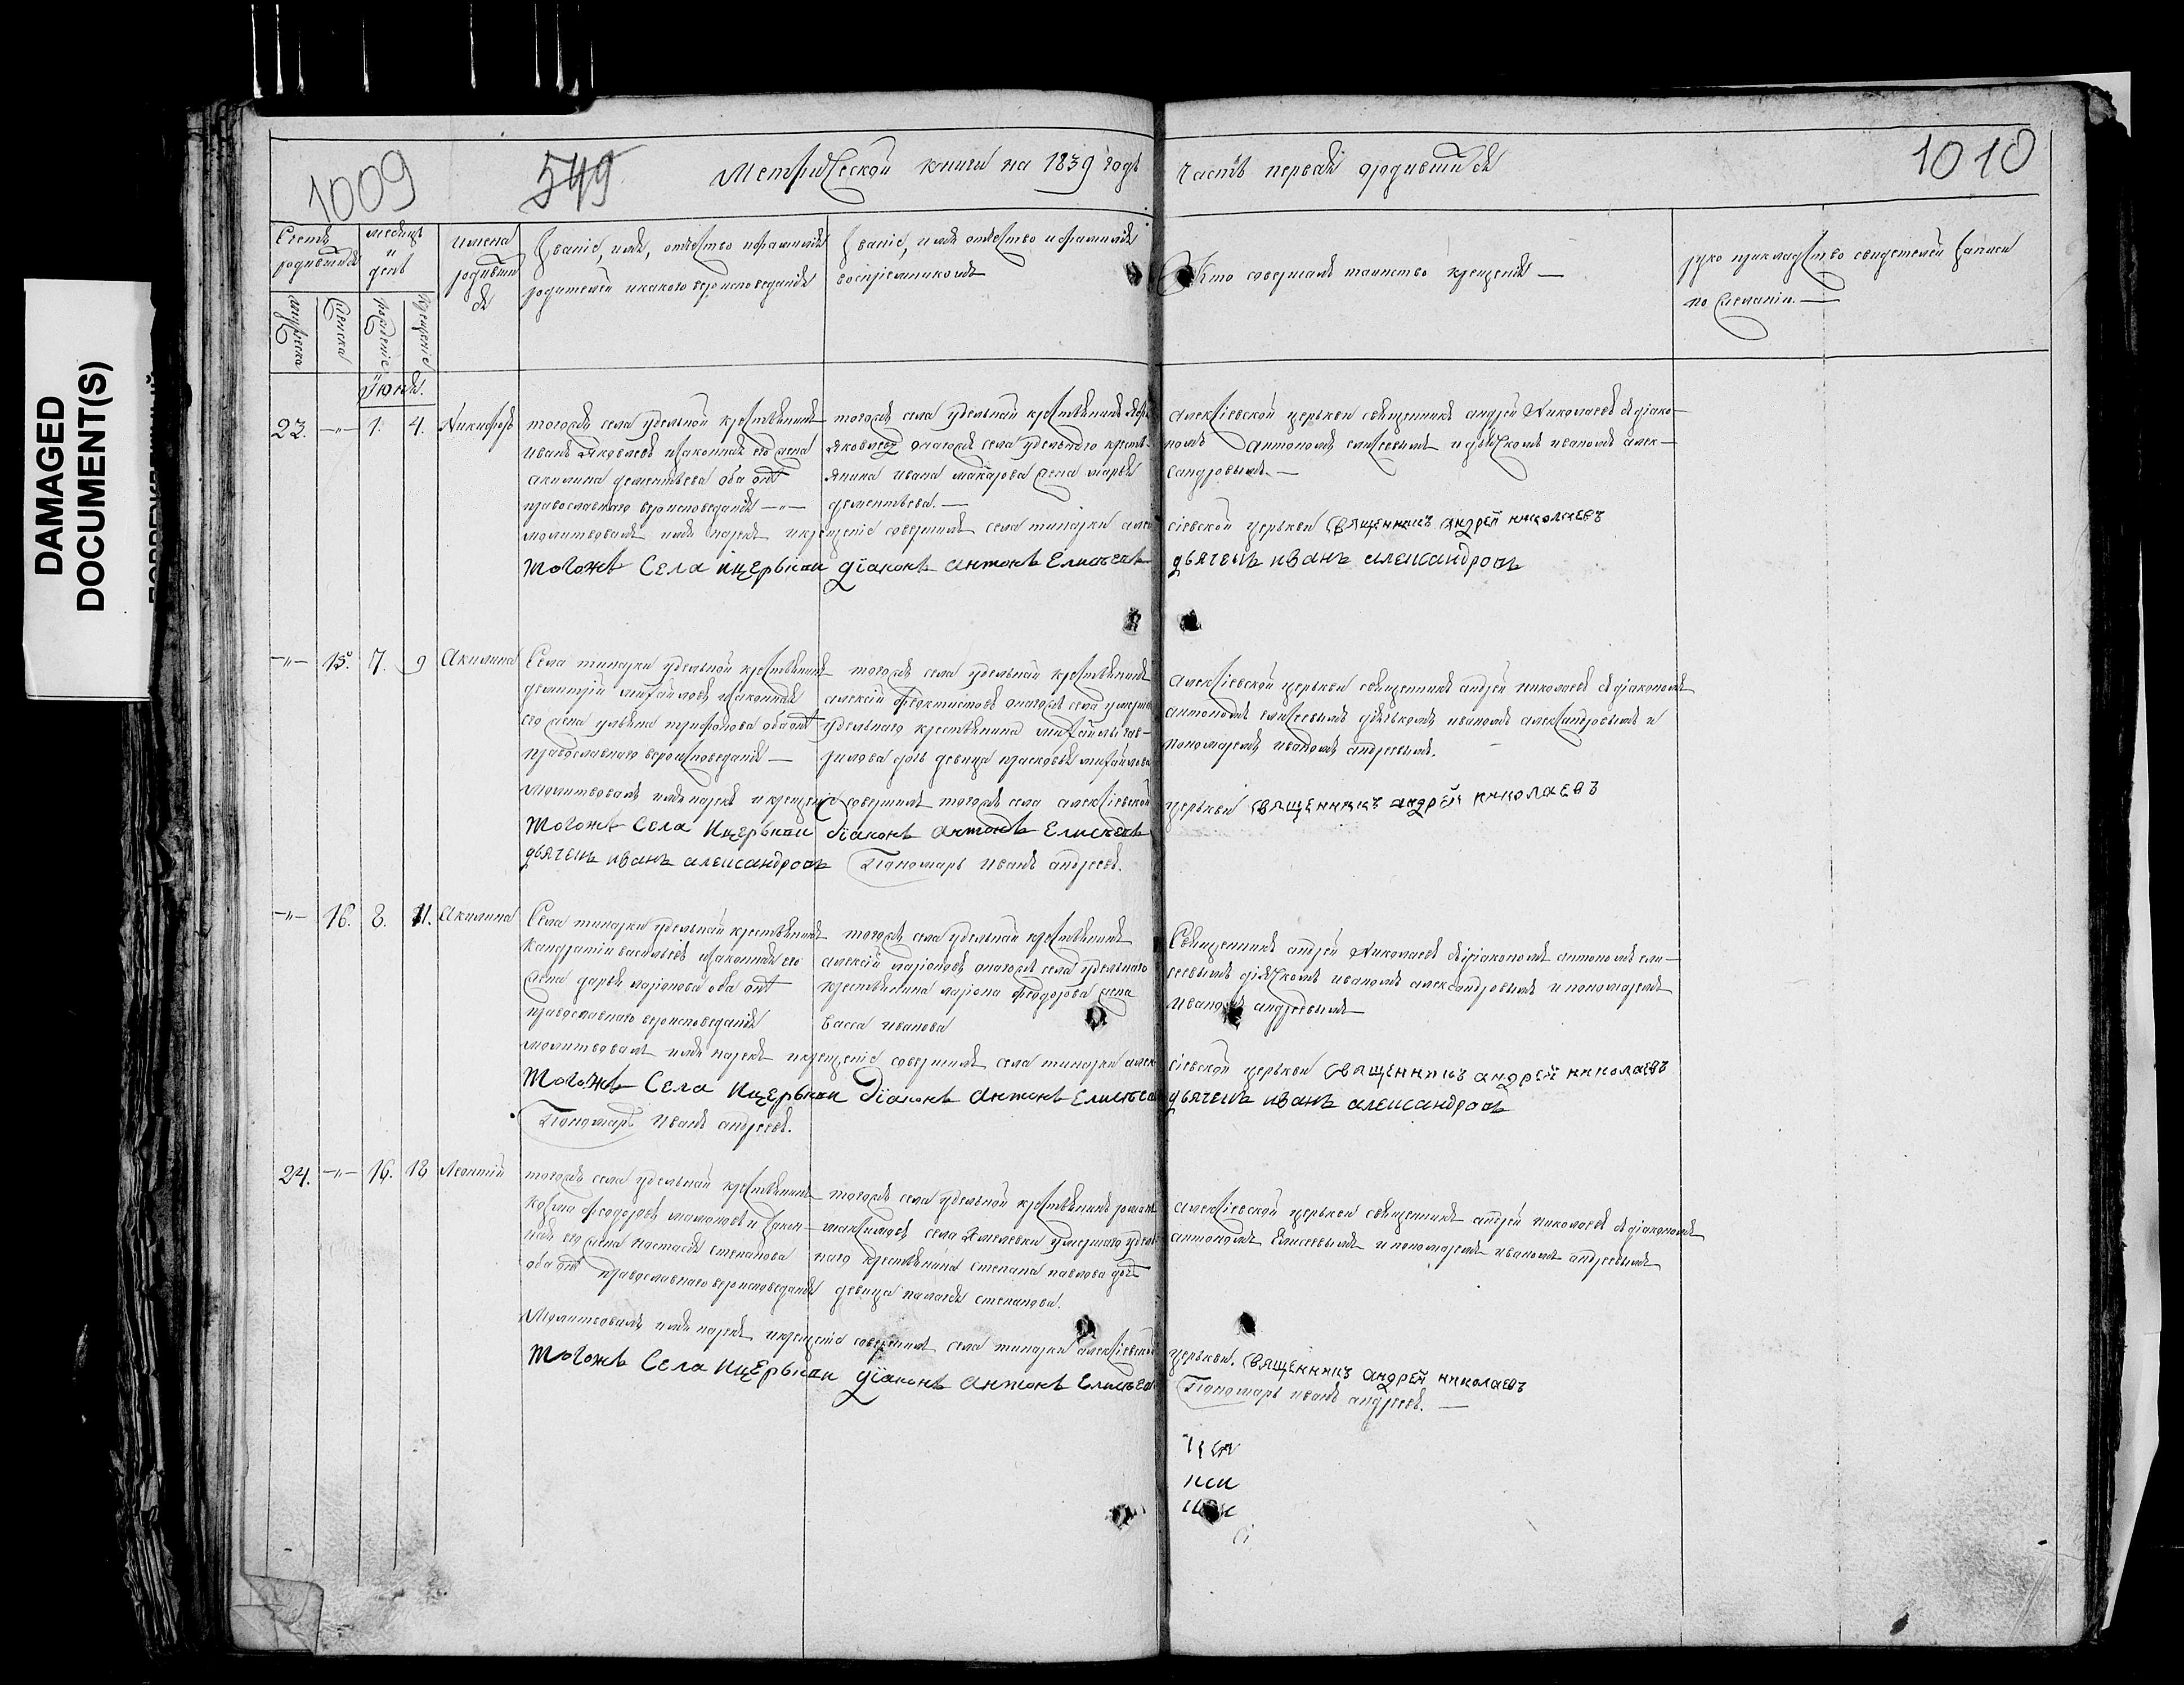 DAMAGED
DOCUMENT(S)
1009
549
Метрической книги на 1839 годъ
Часть первая о родившихся
1010
Счетъ родившихся
мужеска
женска
месяцъ и день
рожденіе
крещеніе
имена родившихся
Званіе, имя, отчество и фамилія
родителей и какого вероисповеданія
Званіе, имя отчество и фамилія
воспріемниковъ
Кто совершалъ таинство крещенія —
руко прикладство свидетелей записи
по желанію. —
Іюня.
23. —"— 1. 4. Никифоръ
тогожъ села удельной крестьянинъ
Иванъ Яковлевъ и законная его жена
акилина дементьева оба
православнаго вероисповеданія —"—
тогожъ села удельной крестьянинъ
Яковлевъ и тогожъ села удельнаго кресть-
янина ивана макарова жена марья
дементьева. —
алексіевской церькви священникъ андрей Николаевъ съ діако-
номъ Антономъ елисеевымъ и дьячкомъ иваномъ алек-
сандровымъ. —
молитвовалъ имя нарекъ и крещеніе совершилъ села тинарки алек
сіевской церькви священникъ андрей николаевъ
тогожъ Села ицерькви діаконъ антонъ Елисѣевъ
дьячекъ иванъ александровъ
—"— 15. 7. 9 Акилина
Села тинарки удельной крестьянинъ
димитрій михайловъ и законная
его жена ульяна трифонова оба
православнаго вероисповеданія —
тогожъ села удельной крестьянинъ
алексій феоктистовъ и тогожъ села умерша
удельнаго крестьянина михайлы гав-
рилова дочь девица прасковья михайлова
алексіевской церькви священникъ андрей николаевъ съ діакономъ
антономъ елисеевымъ дьячькомъ иваномъ александровымъ и
пономаремъ иваномъ андреевымъ.
молитвовалъ имя нарекъ и крещеніе совершилъ тогожъ села алексіевской
церькви священникъ андрей николаевъ
тогожъ Села ицерькви діаконъ антонъ Елисѣевъ
дьячекъ иванъ александровъ Пономарь Иванъ андреевъ.
—"— 16. 8. 11. Акилина
Села тинарки удельной крестьянинъ
Кандратій васильевъ и законная его
жена дарья ларіонова оба
православнаго вероисповеданія
тогожъ села удельной крестьянинъ
алексій ларіоновъ и тогожъ села удельнаго
крестьянина ларіона феодорова жена
васса иванова
Священникъ андрей Николаевъ съ діакономъ антономъ ели-
сеевымъ дьячкомъ иваномъ александровымъ и пономаремъ
Иваномъ андреевымъ —
молитвовалъ имя нарекъ и крещеніе совершилъ села тинарки алек
сіевской церькви священникъ андрей николаевъ
тогожъ Села ицерькви Діаконъ антонъ Елисѣевъ
дьячекъ иванъ александровъ
Пономарь Иванъ андреевъ.
24. —"— 16. 18 Леонтій
тогожъ села удельной крестьянинъ
Козма Феодоровъ мамоновъ и закон-
ная его жена настасья степанова
оба православнаго вероисповеданія
тогожъ села удельной крестьянинъ романъ
максимовъ села умершаго удель
наго крестьянина степана павлова дочь
девица палагея степанова.
алексіевской церькви священникъ андрей николаевъ съ діакономъ
антономъ Елисеевымъ и пономаремъ иваномъ андреевымъ
Молитвовалъ имя нарекъ и крещеніе совершилъ села тинарки алексіевской
церькви. священникъ андрей николаевъ
тогожъ Села ицерькви діаконъ антонъ Елисѣевъ
Пономарь иванъ андреевъ. —